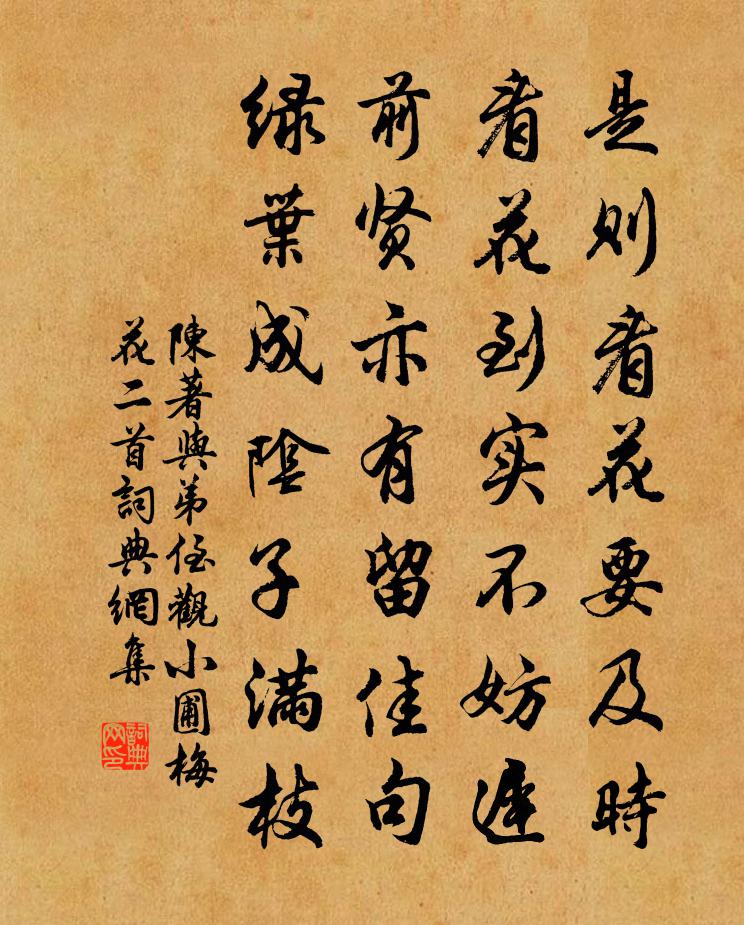 是则看花要及時
看花到实不妨遲
前贤亦有留佳句
绿葉成陰子满枝
陳著與弟侄觀小圃梅
花二首詞典網集
詞典網印